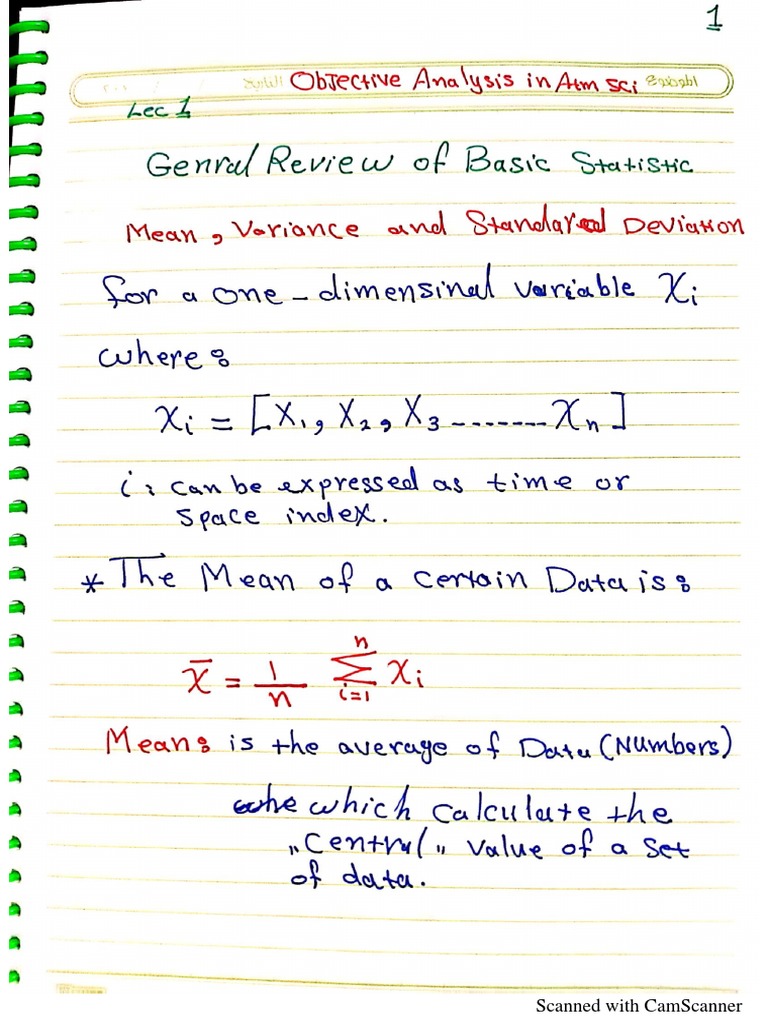 1
Objective Analysis in Atm Sci
Lec 1
Genral Review of Basic Statistic
Mean, Variance and Standared Deviation
for a one-dimensinal variable Xi
where:
xi = [X1, X2, X3 ------- Xn]
i: can be expressed as time or
space index.
* The Mean of a certain Data is:
x̄ = 1/n Σ(i=1 to n) xi
Mean: is the average of Data (Numbers)
which calculate the
"Central" value of a set
of data.
Scanned with CamScanner